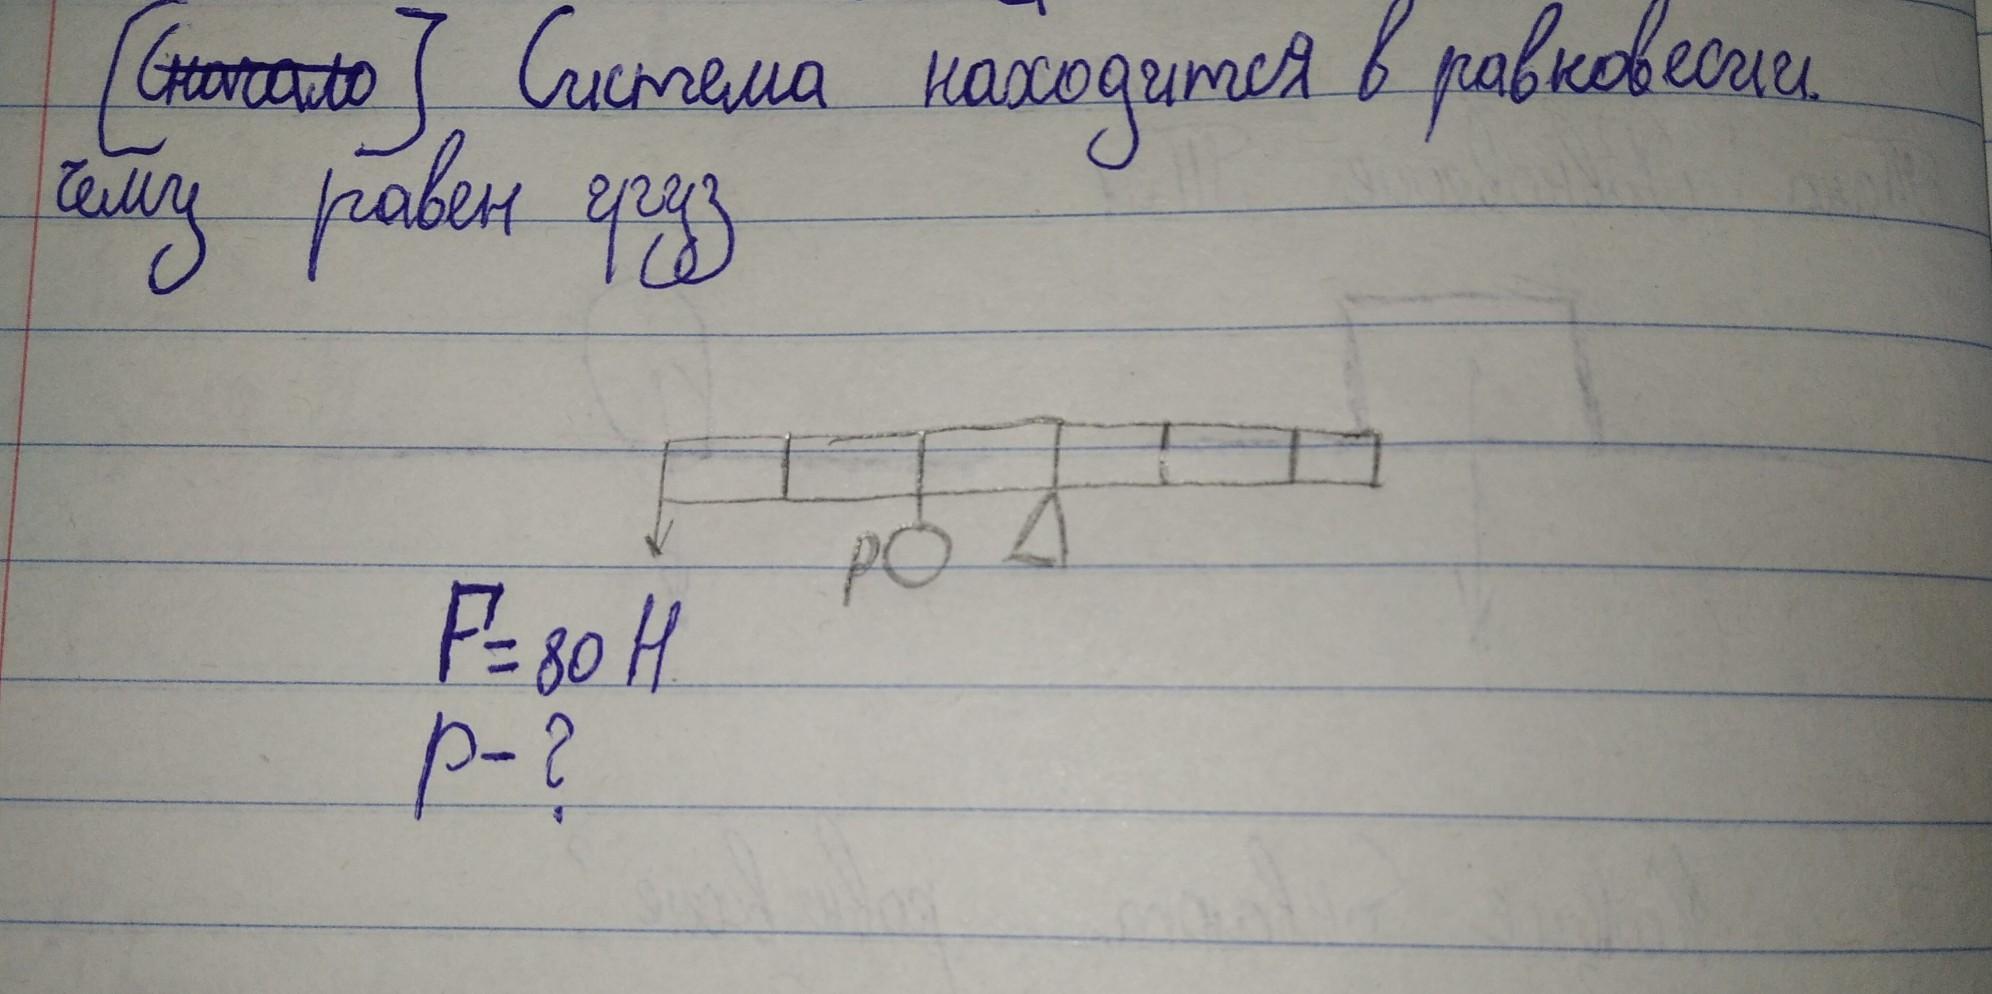 [Сначало] Система находится в равновесии.
Чему равен груз
P
F=80 H
P-?